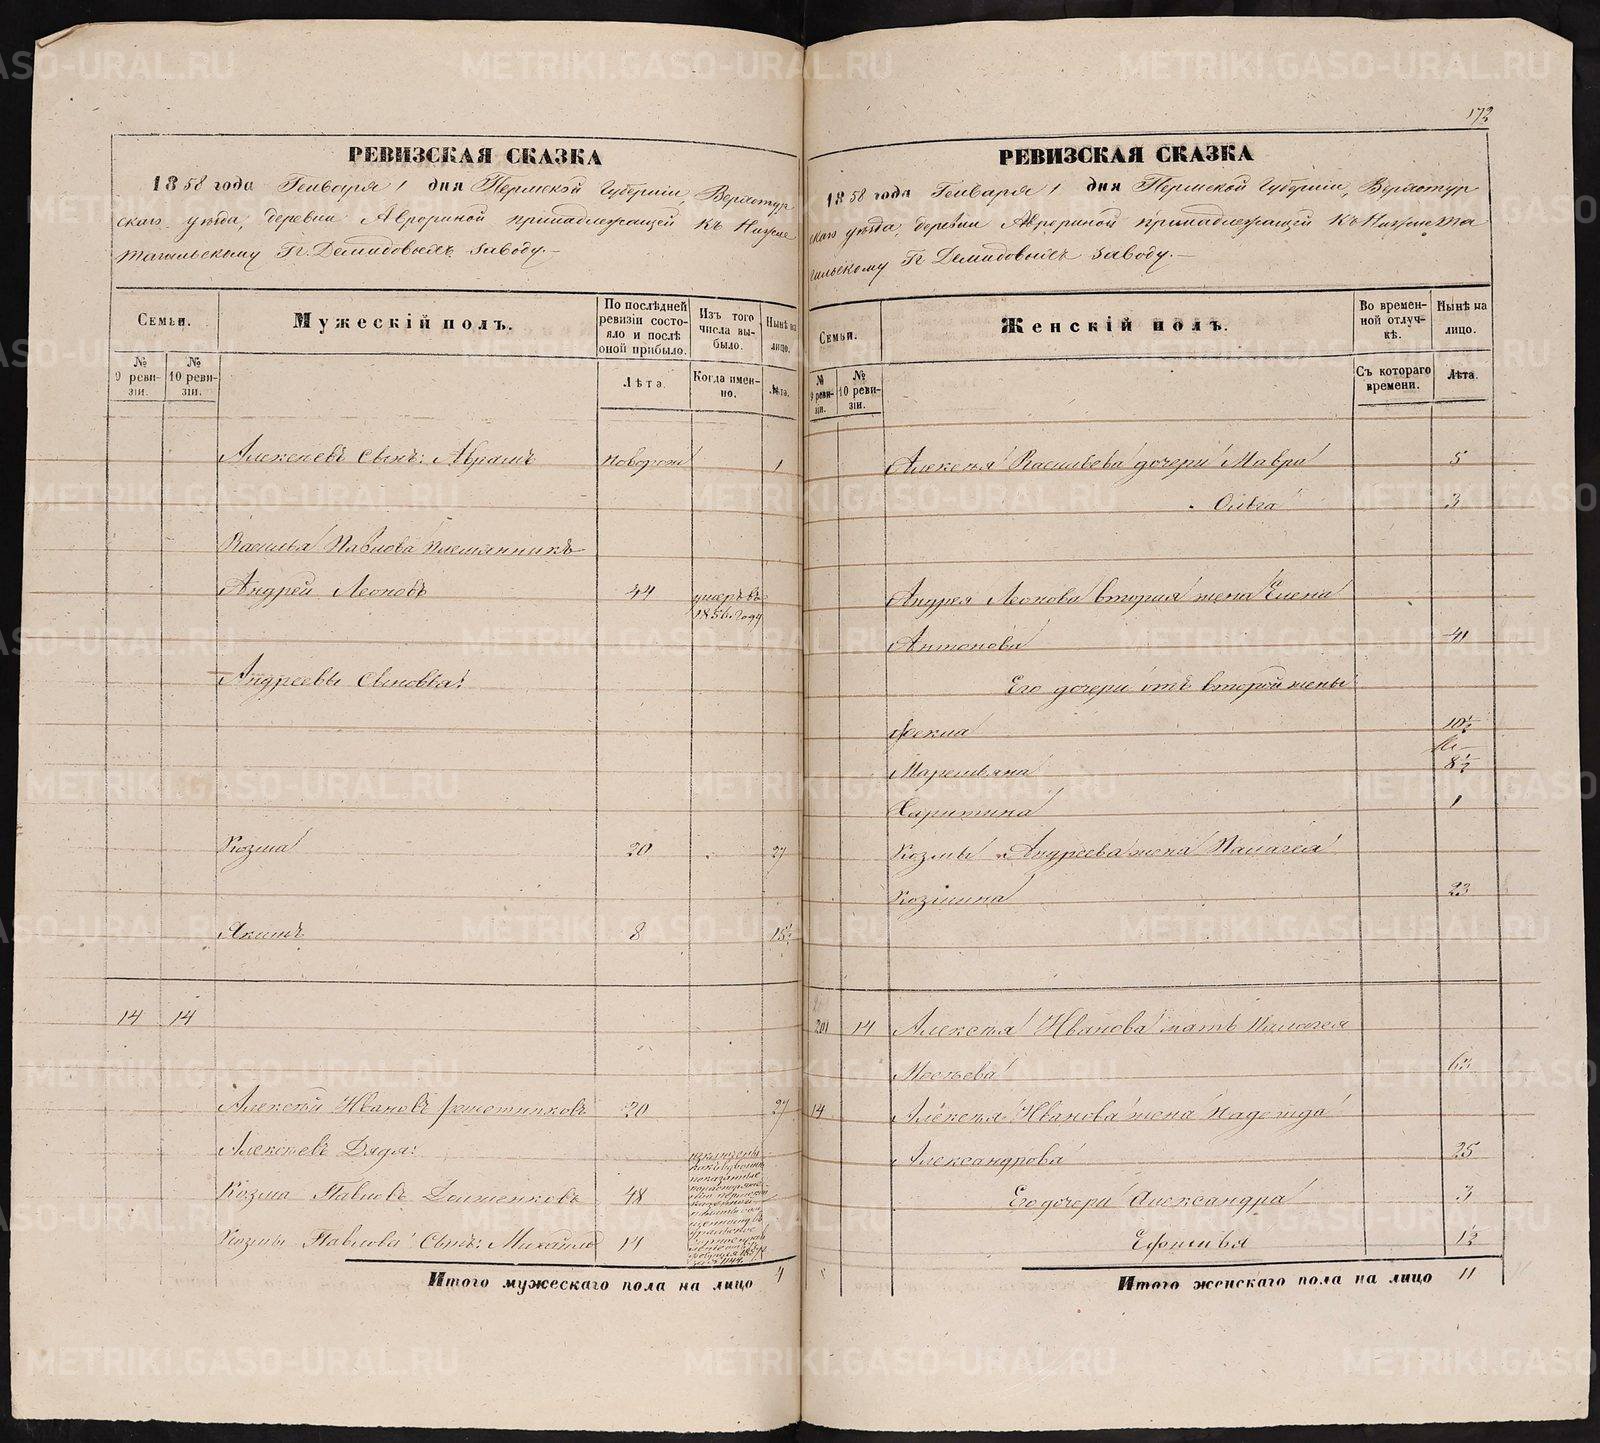 173
РЕВИЗСКАЯ СКАЗКА
1858 года Генваря 1 дня Пермской Губерніи, Верхотур
скаго уѣзда, деревни Аврориной принадлежащей къ Нижне
тагильскому Гг. Демидовыхъ заводу.-
Семьи.
Мужескій полъ.
По послѣдней ревизіи состо-
яло и послѣ оной прибыло.
Изъ того числа вы-
было.
Нынѣ на лицо.
№ 9 реви-
зіи.
№ 10 реви-
зіи.
Лѣта.
Когда имен-
но.
Лѣта.
Алексѣевъ Сынъ: Аврамъ новорож 1
Василья Павлова племянникъ
Андрей Леоновъ 44 умеръ въ
1856. году
Андреевы Сыновья:
Козма 20 27
Якимъ 8 15½
14 14
Алексѣй Ивановъ Решетниковъ 20 27
Алексѣевъ Дядя:
Козма Павловъ 48
Козмы Павлова Сынъ: Михайло 14
Итого мужескаго пола на лицо 4
РЕВИЗСКАЯ СКАЗКА
1858 года Генваря 1 дня Пермской Губерніи, Верхотур
скаго уѣзда, деревни Аврориной принадлежащей къ Нижнета
гильскому Гг. Демидовыхъ заводу.-
Семьи.
Женскій полъ.
Во времен-
ной отлуч-
кѣ.
Нынѣ на лицо.
№ 9 реви-
зіи.
№ 10 реви-
зіи.
Съ котораго времени.
Лѣта.
Алексѣя Васильева дочери Мавра 5
Ольга 3
Андрея Леонова вторая жена Елена
Антонова 41
Его дочери отъ второй жены
Фекла 10½
Маремьяна 8½
Харитина 1
Козмы Андреева жена Палагея
Козмина 23
201 14 Алексѣя Иванова мать Палагея
Мосѣева 63
14 Алексѣя Иванова жена Надежда
Александрова 25
Его дочери Александра 3
Ефимья 1½
Итого женскаго пола на лицо 11
METRIKI.GASO-URAL.RU